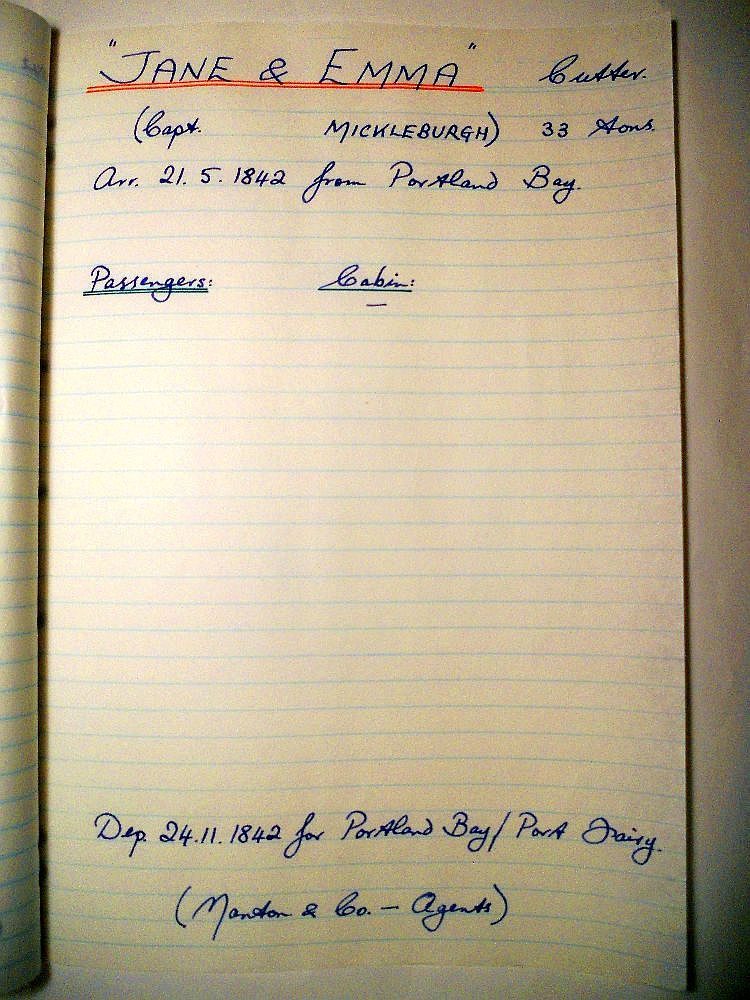 "JANE & EMMA" Cutter.
(Capt. MICKLEBURGH) 33 tons.
Arr. 21. 5. 1842 from Portland Bay.
Passengers: Cabin:
—
Dep. 24.11.1842 for Portland Bay/ Port Fairy.
(Manton & Co. — Agents)